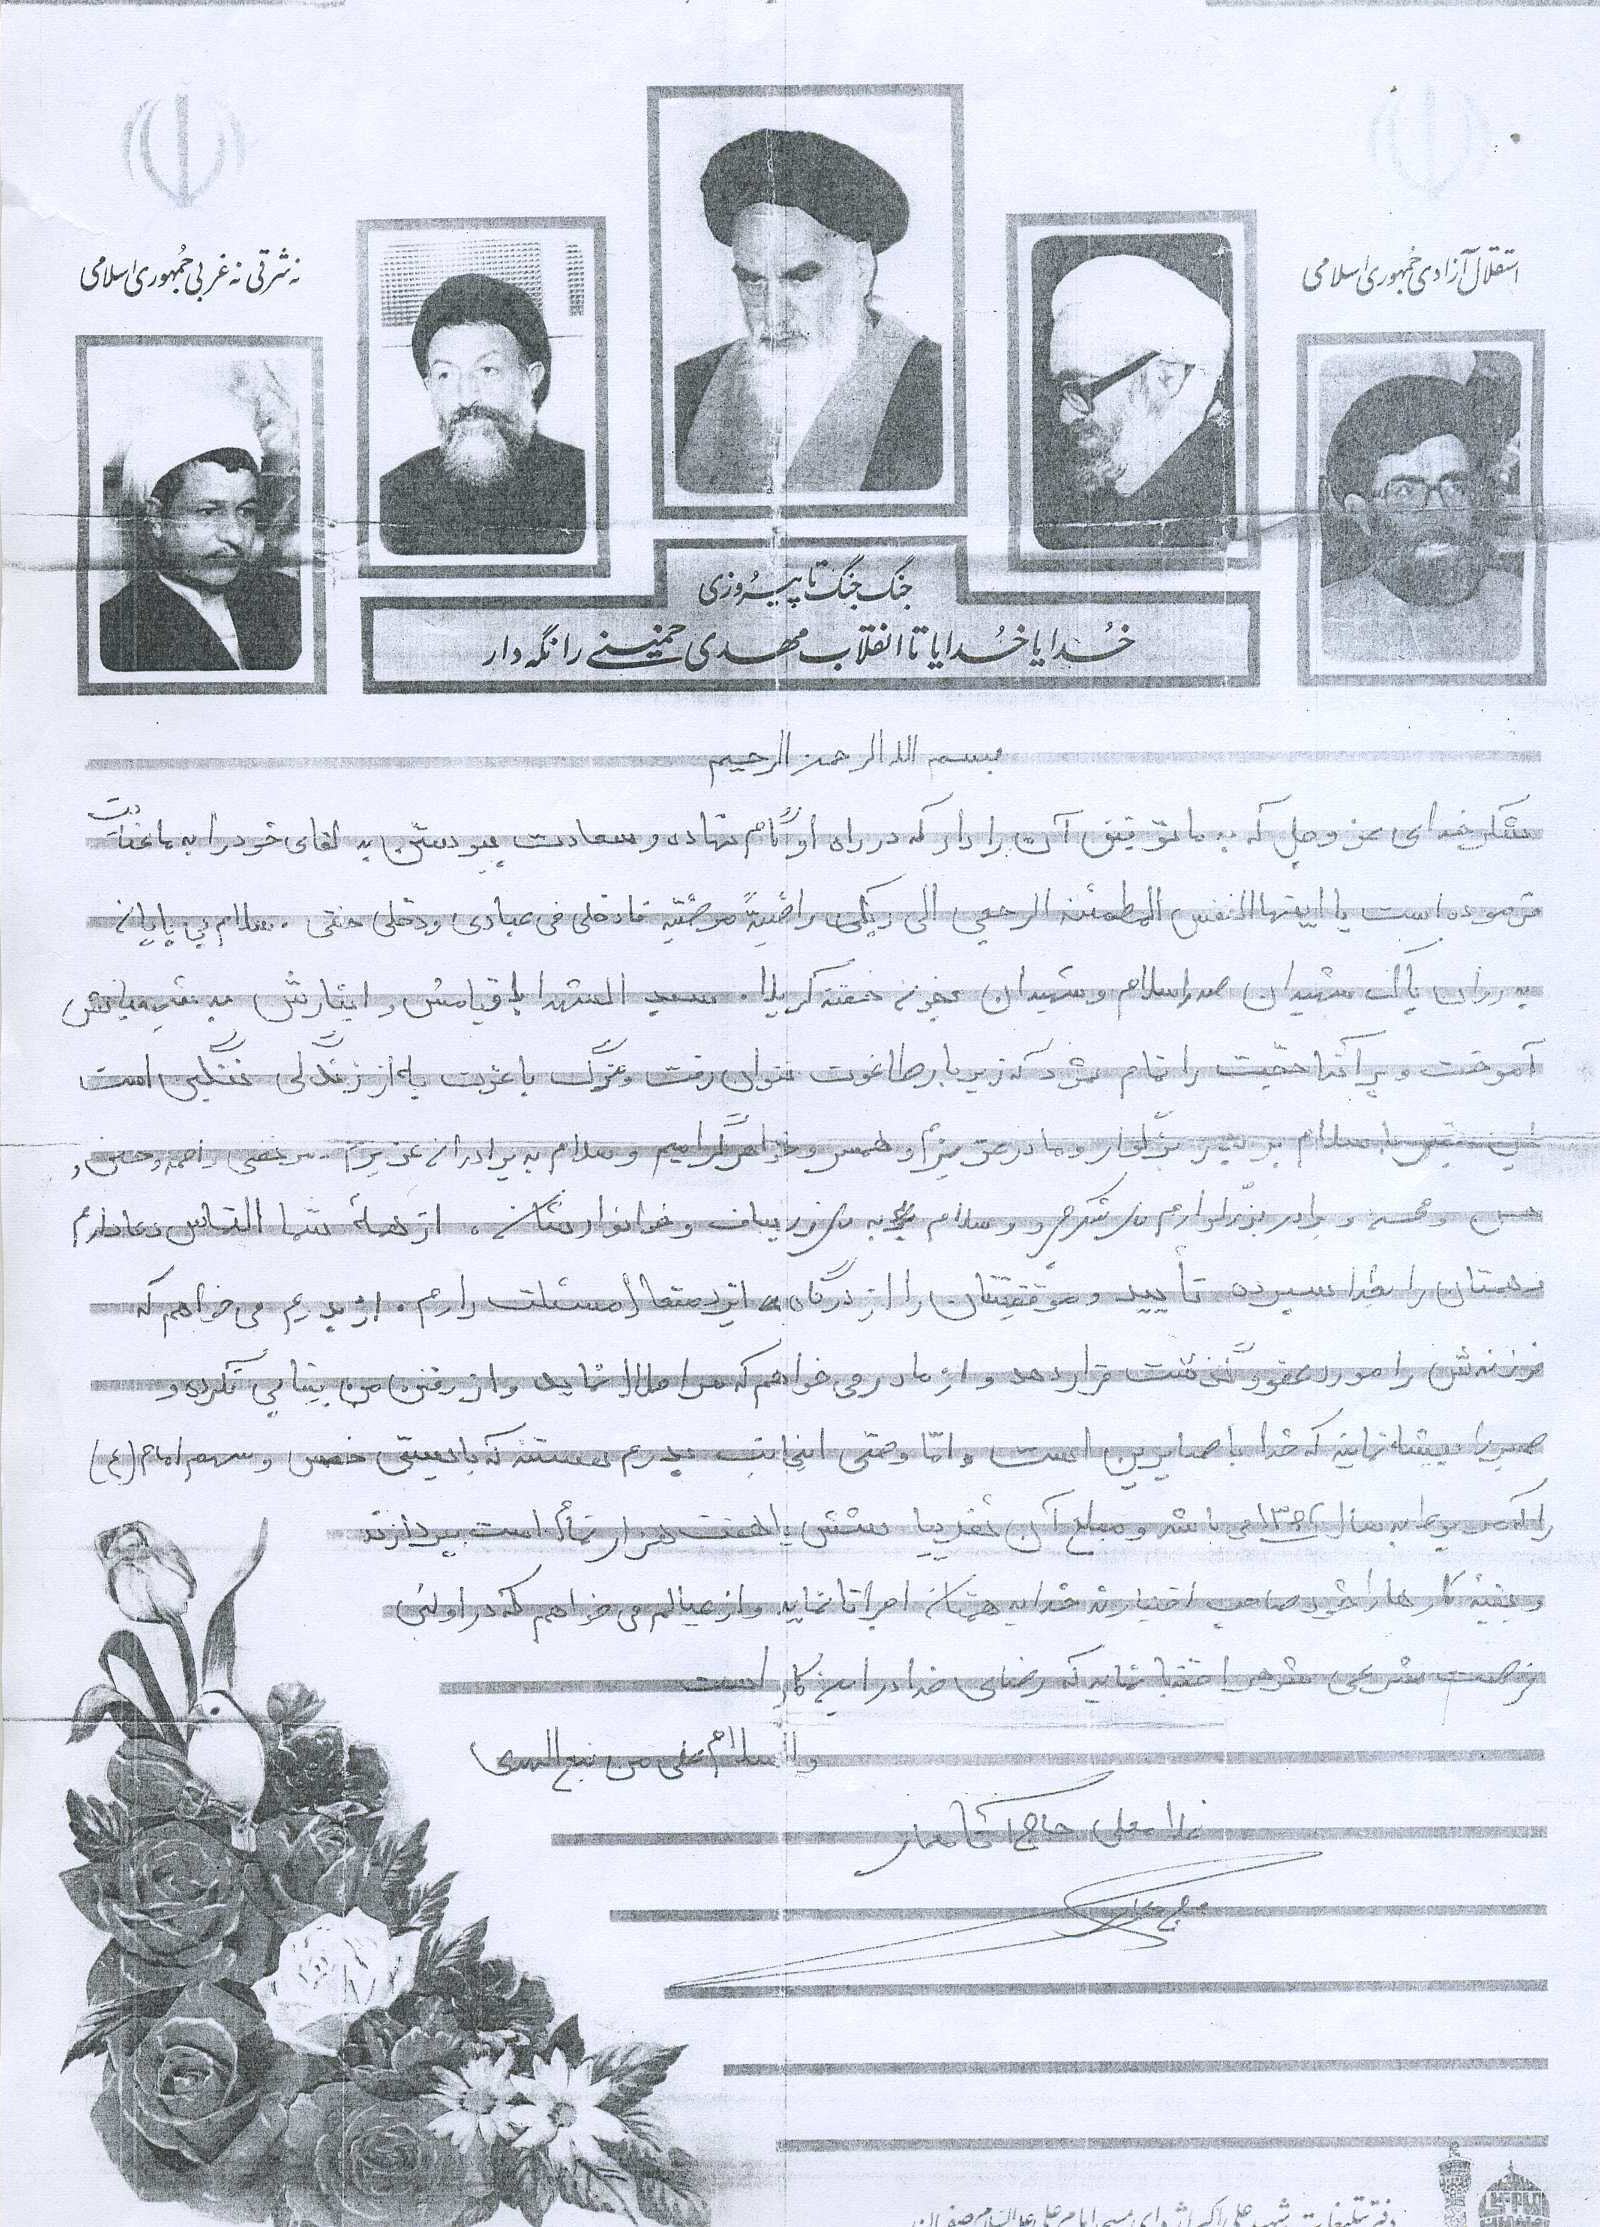 استقلال آزادی جمهوری اسلامی
نه شرقی نه غربی جمهوری اسلامی
جنگ جنگ تا پیروزی
خدایا خدایا تا انقلاب مهدی خمینی را نگه دار
بسم الله الرحمن الرحیم
شکر خدای عز و جل که به ما توفیق آن را داد که در راه او گام نهاده و سعادت پیوستن به لقای خود را به ما عنایت
فرموده است یا ایتها النفس المطمئنه ارجعی الی ربکی راضیةً مرضیّه فادخلی فی عبادی ودخلی جنتی . سلام بی پایانم
به روان پاک شهیدان صدر اسلام و شهیدان بخون خفته کربلا . سید الشهدا با قیامش و ایثارش به شیعیانش
آموخت و بر آنها حجّت را تمام نمود که زیر بار طاغوت نتوان رفت و مرگ با عزت به از زندگی ننگین است
سلام بر پدر بزرگوار و مادر عزیزم و همسر و خواهر گرامیم و سلام به برادران عزیزم
حسن و محسن و برادر بزرگوارم و سلام به و خانواده شان . از همهٔ شما التماس دعا دارم
همتان را بخدا سپرده تأیید و موفقیتتان را از درگاه ایزد متعال مسئلت دارم . از پدرم می خواهم که
فرزندش را مورد عفو و گذشت قرار دهد و از مادر می خواهم که مرا حلال نماید و از رفتن من بیتابی نکرده و
صبر را پیشه نماید که خدا با صابرین است و امّا وصی اینجانب پدرم هستند که بایستی خمس و سهم امام (ع)
را که مربوط به سال ۱۳۶۲ می باشد و مبلغ آن تقریبا شش یا هفت هزار تومان است بپردازند
و بقیهٔ کارها را خود صاحب اختیارند خدا به همتان اجر عطا نماید و از عیالم می خواهم که در اولین
فرصت شرعی شوهر اختیار نماید که رضای خدا در این کار است
والسلام علی من تبع الهدی
غلامعلی حاج آقا معمار
دفتر تبلیغات شهید علی اکبر اژه ای مسجد امام علی علیه السلام اصفهان